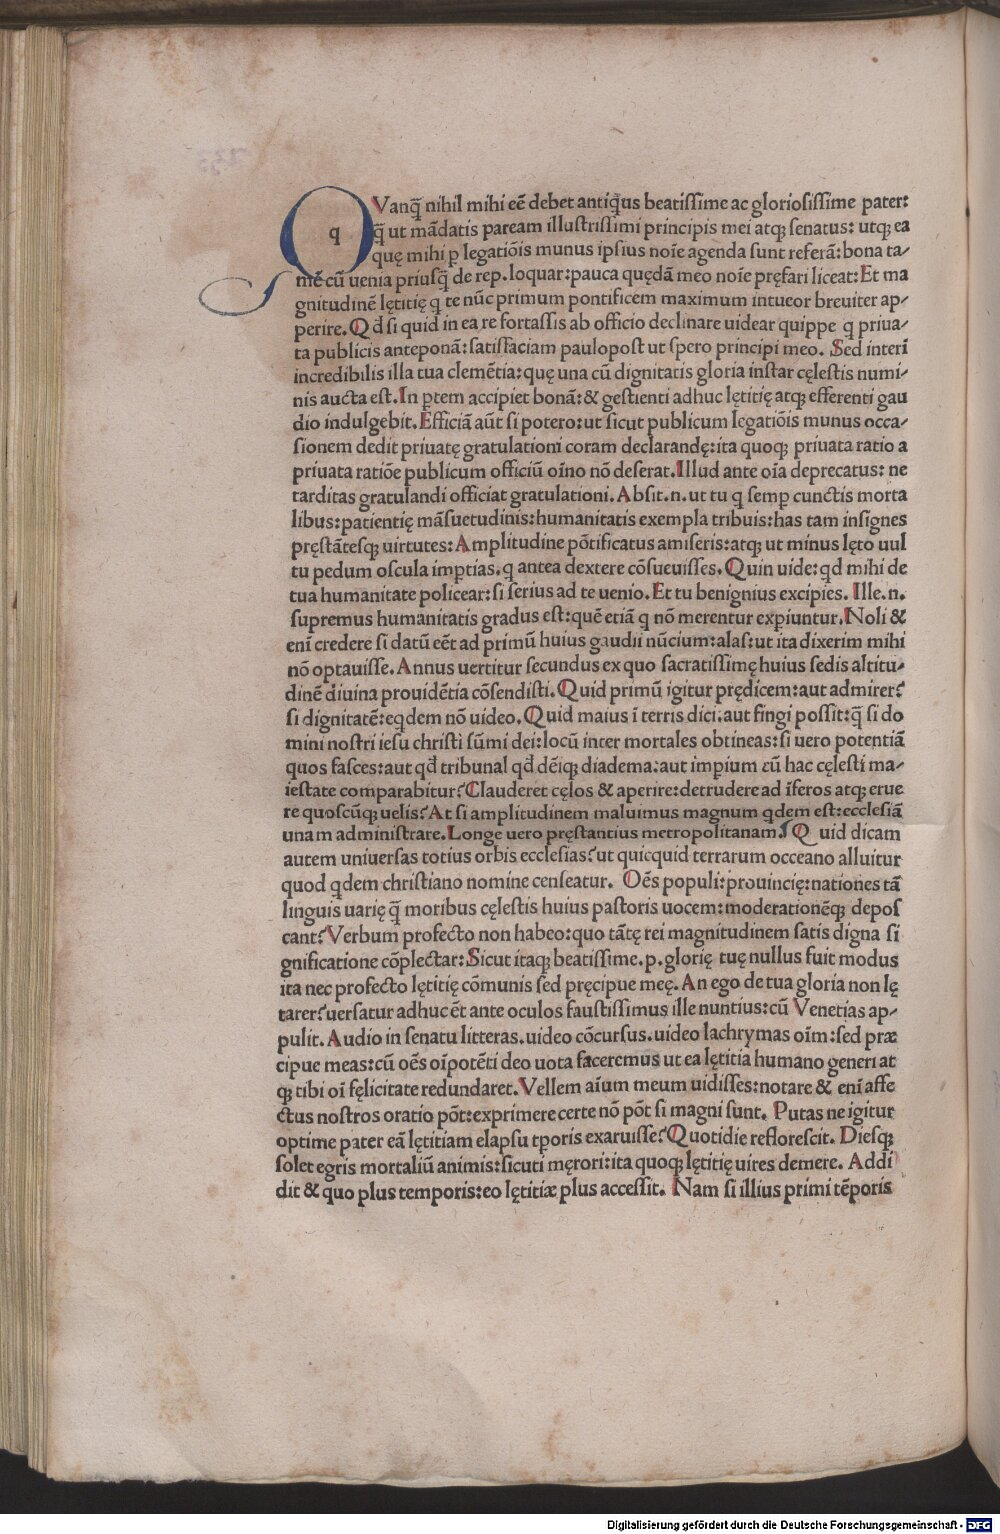 QVanq̃ nihil mihi eẽ debet antiq̇us beatissime ac gloriosissime pater:
q̃ ut mãdatis paream illustrissimi principis mei atqꝫ senatus: utqꝫ ea
quę mihi ꝑ legatiõis munus ipsius noĩe agenda sunt referã: bona ta⸗
mẽ cũ uenia priusq̃ de rep. loquar: pauca quędã meo noĩe pręfari liceat: Et ma
gnitudinẽ lętitię q te nũc primum pontificem maximum intueor breuiter ap⸗
perire. Qđ si quid in ea re fortassis ab officio declinare uidear quippe q priua⸗
ta publicis anteponã: satisfaciam paulopost ut spero principi meo. Sed interĩ
incredibilis illa tua clemẽtia: quę una cũ dignitatis gloria instar cęlestis numi⸗
nis aucta est. In ꝑtem accipiet bonã: & gestienti adhuc lętitię atqꝫ efferenti gau
dio indulgebit. Efficiã aũt si potero: ut sicut publicum legatiõis munus occa⸗
sionem dedit priuatę gratulationi coram declarandę: ita quoqꝫ priuata ratio a
priuata ratiõe publicum officiũ oĩno nõ deserat. Illud ante oĩa deprecatus: ne
tarditas gratulandi officiat gratulationi. Absit .n. ut tu q semꝑ cunctis morta
libus: patientię mãsuetudinis: humanitatis exempla tribuis: has tam insignes
pręstãtesqꝫ uirtutes: Amplitudine põtificatus amiseris: atqꝫ ut minus lęto uul
tu pedum oscula imꝑtias. q antea dextere cõsueuisses. Quin uide: qđ mihi de
tua humanitate policear: si serius ad te uenio. Et tu benignius excipies. Ille .n.
supremus humanitatis gradus est: quẽ etiã q nõ merentur exꝑiuntur. Noli &
enĩ credere si datũ eẽt ad primũ huius gaudii nũcium: alas: ut ita dixerim mihi
nõ optauisse. Annus uertitur secundus ex quo sacratissimę huius sedis altitu⸗
dinẽ diuina prouidẽtia cõsendisti. Quid primũ igitur prędicem: aut admirer?
si dignitatẽ: eqdem nõ uideo. Quid maius ĩ terris dici: aut fingi possit: q̃ si do
mini nostri iesu christi sũmi dei: locũ inter mortales obtineas: si uero potentiã
quos fasces: aut qđ tribunal qđ dẽiqꝫ diadema: aut imꝑium cũ hac cęlesti ma⸗
iestate comparabitur? Clauderet cęlos & aperire: detrudere ad ĩferos atqꝫ erue
re quoscũqꝫ uelis? At si amplitudinem maluimus magnum qdem est: ecclesiã
unam administrare. Longe uero pręstantius metropolitanam. Q uid dicam
autem uniuersas totius orbis ecclesias? ut quicquid terrarum occeano alluitur
quod qdem christiano nomine censeatur. Oẽs populi: prouincię: nationes tã
linguis uarię q̃ moribus cęlestis huius pastoris uocem: moderationẽqꝫ depos
cant? Verbum profecto non habeo: quo tãtę rei magnitudinem satis digna si
gnificatione cõplectar: Sicut itaqꝫ beatissime .p. glorię tuę nullus fuit modus
ita nec profecto lętitię cõmunis sed pręcipue meę. An ego de tua gloria non lę
tarer? uersatur adhuc ẽt ante oculos faustissimus ille nuntius: cũ Venetias ap⸗
pulit. Audio in senatu litteras. uideo cõcursus. uideo lachrymas oĩm: sed præ
cipue meas: cũ oẽs oĩpotẽti deo uota faceremus ut ea lętitia humano generi at
qꝫ tibi oĩ fęlicitate redundaret. Vellem aĩum meum uidisses: notare & enĩ affe
ctus nostros oratio põt: exprimere certe nõ põt si magni sunt. Putas ne igitur
optime pater eã lętitiam elapsu tꝑoris exaruisse? Quotidie reflorescit. Diesqꝫ
solet egris mortaliũ animis: sicuti męrori: ita quoqꝫ lętitię uires demere. Addi
dit & quo plus temporis: eo lętitiæ plus accessit. Nam si illius primi tẽporis
Digitalisierung gefördert durch die Deutsche Forschungsgemeinschaft - DFG